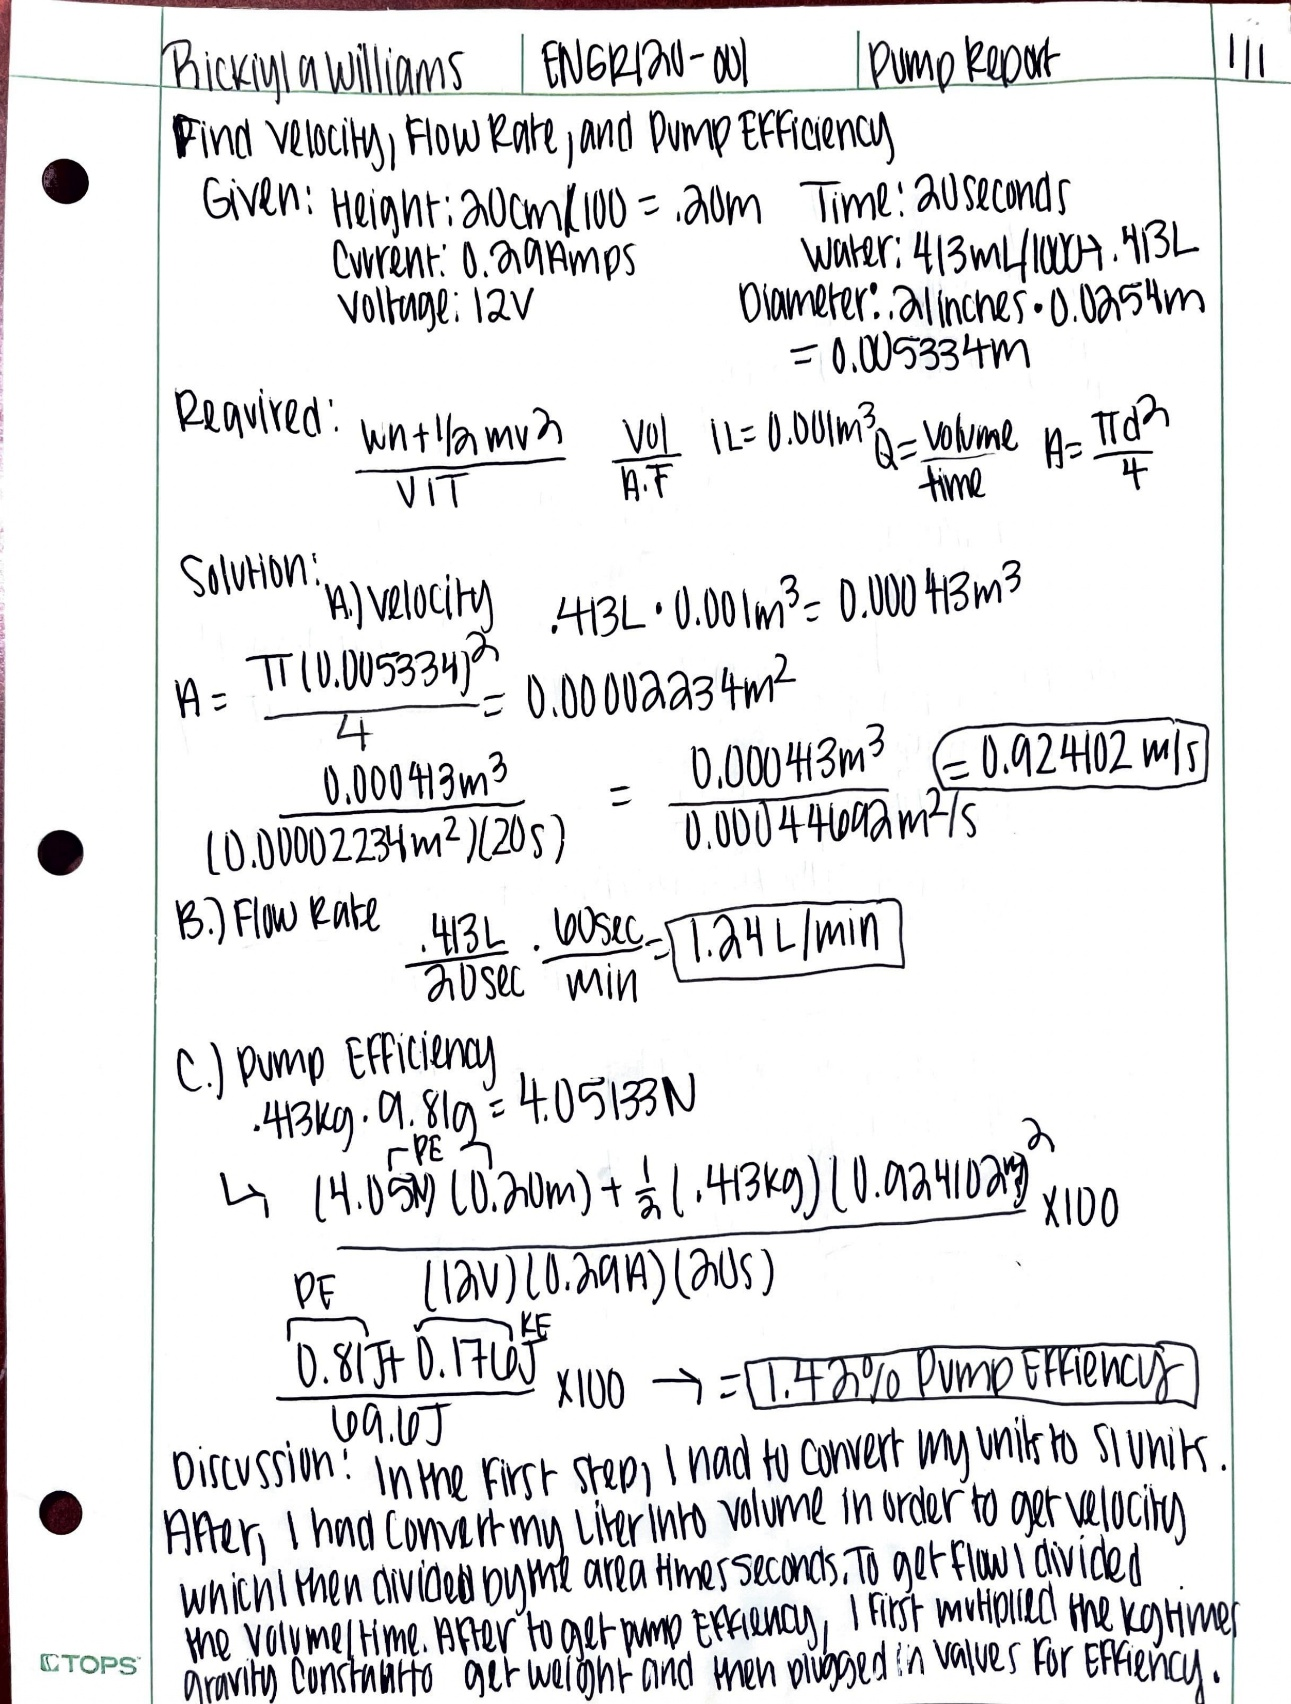 Rickiyla Williams | ENGR120-001 | Pump Report 1/1
Find velocity, Flow Rate, and Pump Efficiency
Given: Height: 20cm/100 = .20m Time: 20 seconds
Current: 0.29 Amps Water: 413mL/1000→.413L
Voltage: 12V Diameter: .21 inches • 0.0254m
= 0.005334m
Required: (wh + 1/2 mv²)/(VIT) Vol/(A·T) 1L = 0.001m³ Q = volume/time A = πd²/4
Solution:
A.) velocity .413L • 0.001m³ = 0.000413m³
A = π(0.005334)²/4 = 0.00002234m²
0.000413m³/((0.00002234m²)(20s)) = 0.000413m³/(0.00044692m²/s) = 0.924102 m/s
B.) Flow Rate .413L/20sec · 60sec/min = 1.24 L/min
C.) Pump Efficiency
.413kg · 9.81g = 4.05133N
PE
↳ ((4.05N)(0.20m) + 1/2(.413kg)(0.924102m/s)²)/((12V)(0.29A)(20s)) x100
PE KE
(0.81J + 0.176J)/69.6J x100 → = 1.42% Pump Effiency
Discussion: In the First Step, I had to convert my units to SI units.
After, I had convert my Liter Into volume in order to get velocity
which I then divided by the area times seconds. To get flow I divided
the volume/time. After to get pump Effiency, I first multiplied the kg times
gravity constant to get weight and then plugged in values for Effiency.
TOPS